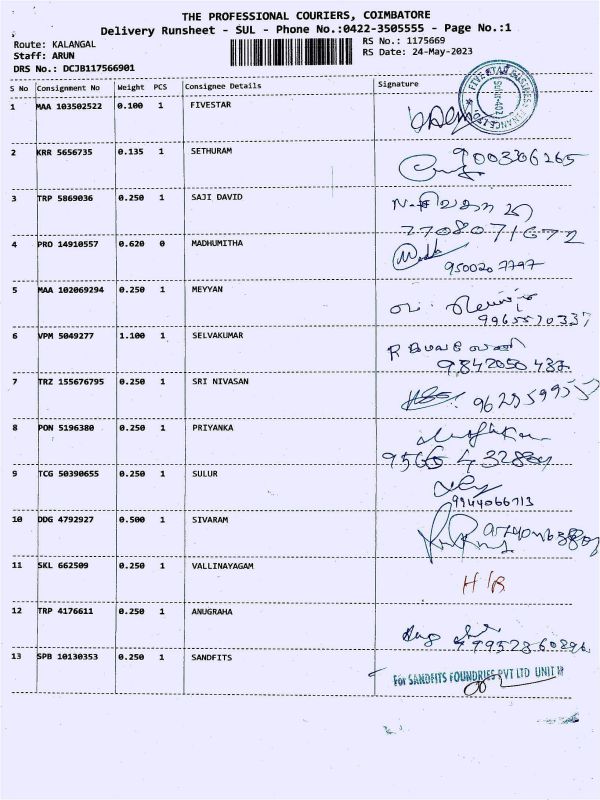 THE PROFESSIONAL COURIERS, COIMBATORE
Delivery Runsheet - SUL - Phone No.:0422-3505555 - Page No.:1
Route: KALANGAL
RS No.: 1175669
Staff: ARUN
RS Date: 24-May-2023
DRS No.: DCJB117566901
S No Consignment No Weight PCS Consignee Details Signature
1 MAA 103502522 0.100 1 FIVESTAR
2 KRR 5656735 0.135 1 SETHURAM
9003306265
3 TRP 5869036 0.250 1 SAJI DAVID
7708071672
4 PRO 14910557 0.620 0 MADHUMITHA
9500207797
5 MAA 102069294 0.250 1 MEYYAN
9965570337
6 VPM 5049277 1.100 1 SELVAKUMAR
9842050437
7 TRZ 155676795 0.250 1 SRI NIVASAN
8 PON 5196380 0.250 1 PRIYANKA
9 TCG 50390655 0.250 1 SULUR
9944066713
10 DDG 4792927 0.500 1 SIVARAM
11 SKL 662509 0.250 1 VALLINAYAGAM
H/R
12 TRP 4176611 0.250 1 ANUGRAHA
13 SPB 10130353 0.250 1 SANDFITS
For SANDFITS FOUNDRIES PVT LTD UNIT II